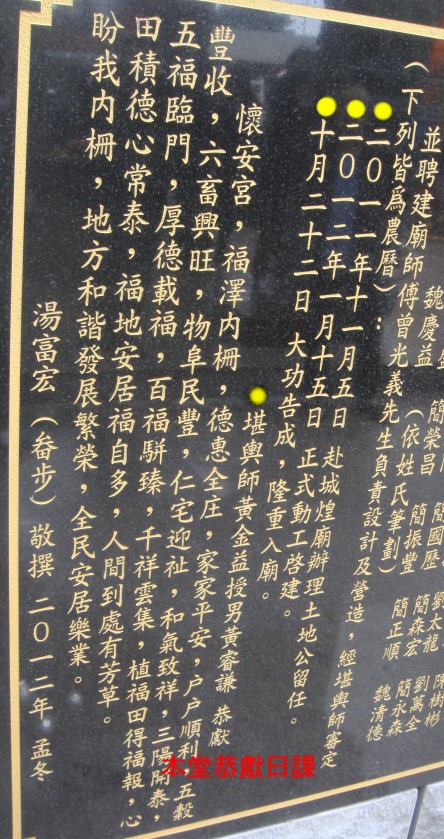 魏慶益 簡榮昌 劉太龍 陳樹彬
（依姓氏筆劃） 簡振豐 簡森宏 劉萬全
簡正順 簡永森 魏清德
並聘建廟師傅曾光義先生負責設計及營造，經堪輿師審定
（下列皆爲農曆）：
二〇一一年十一月五日 赴城煌廟辦理土地公留任。
二〇一二年一月十五日 正式動工啓建。
十月二十二日 大功告成，隆重入廟。
堪輿師黃金益授男黃睿謙 恭獻
懷安宮，福澤內柵，德惠全庄，家家平安，户户順利，五穀
豐收，六畜興旺，物阜民豐，仁宅迎祉，和氣致祥，三陽開泰，
五福臨門，厚德載福，百福駢臻，千祥雲集，植福田得福報，心
田積德心常泰，福地安居福自多，人間到處有芳草。
盼我內柵，地方和諧發展繁榮，全民安居樂業。
湯富宏（畚步）敬撰 二〇一二年 孟冬
本堂恭獻日課